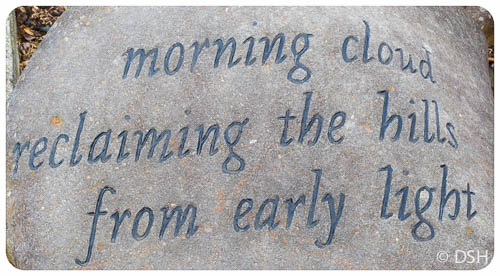 morning cloud
reclaiming the hills
from early light
© DSH